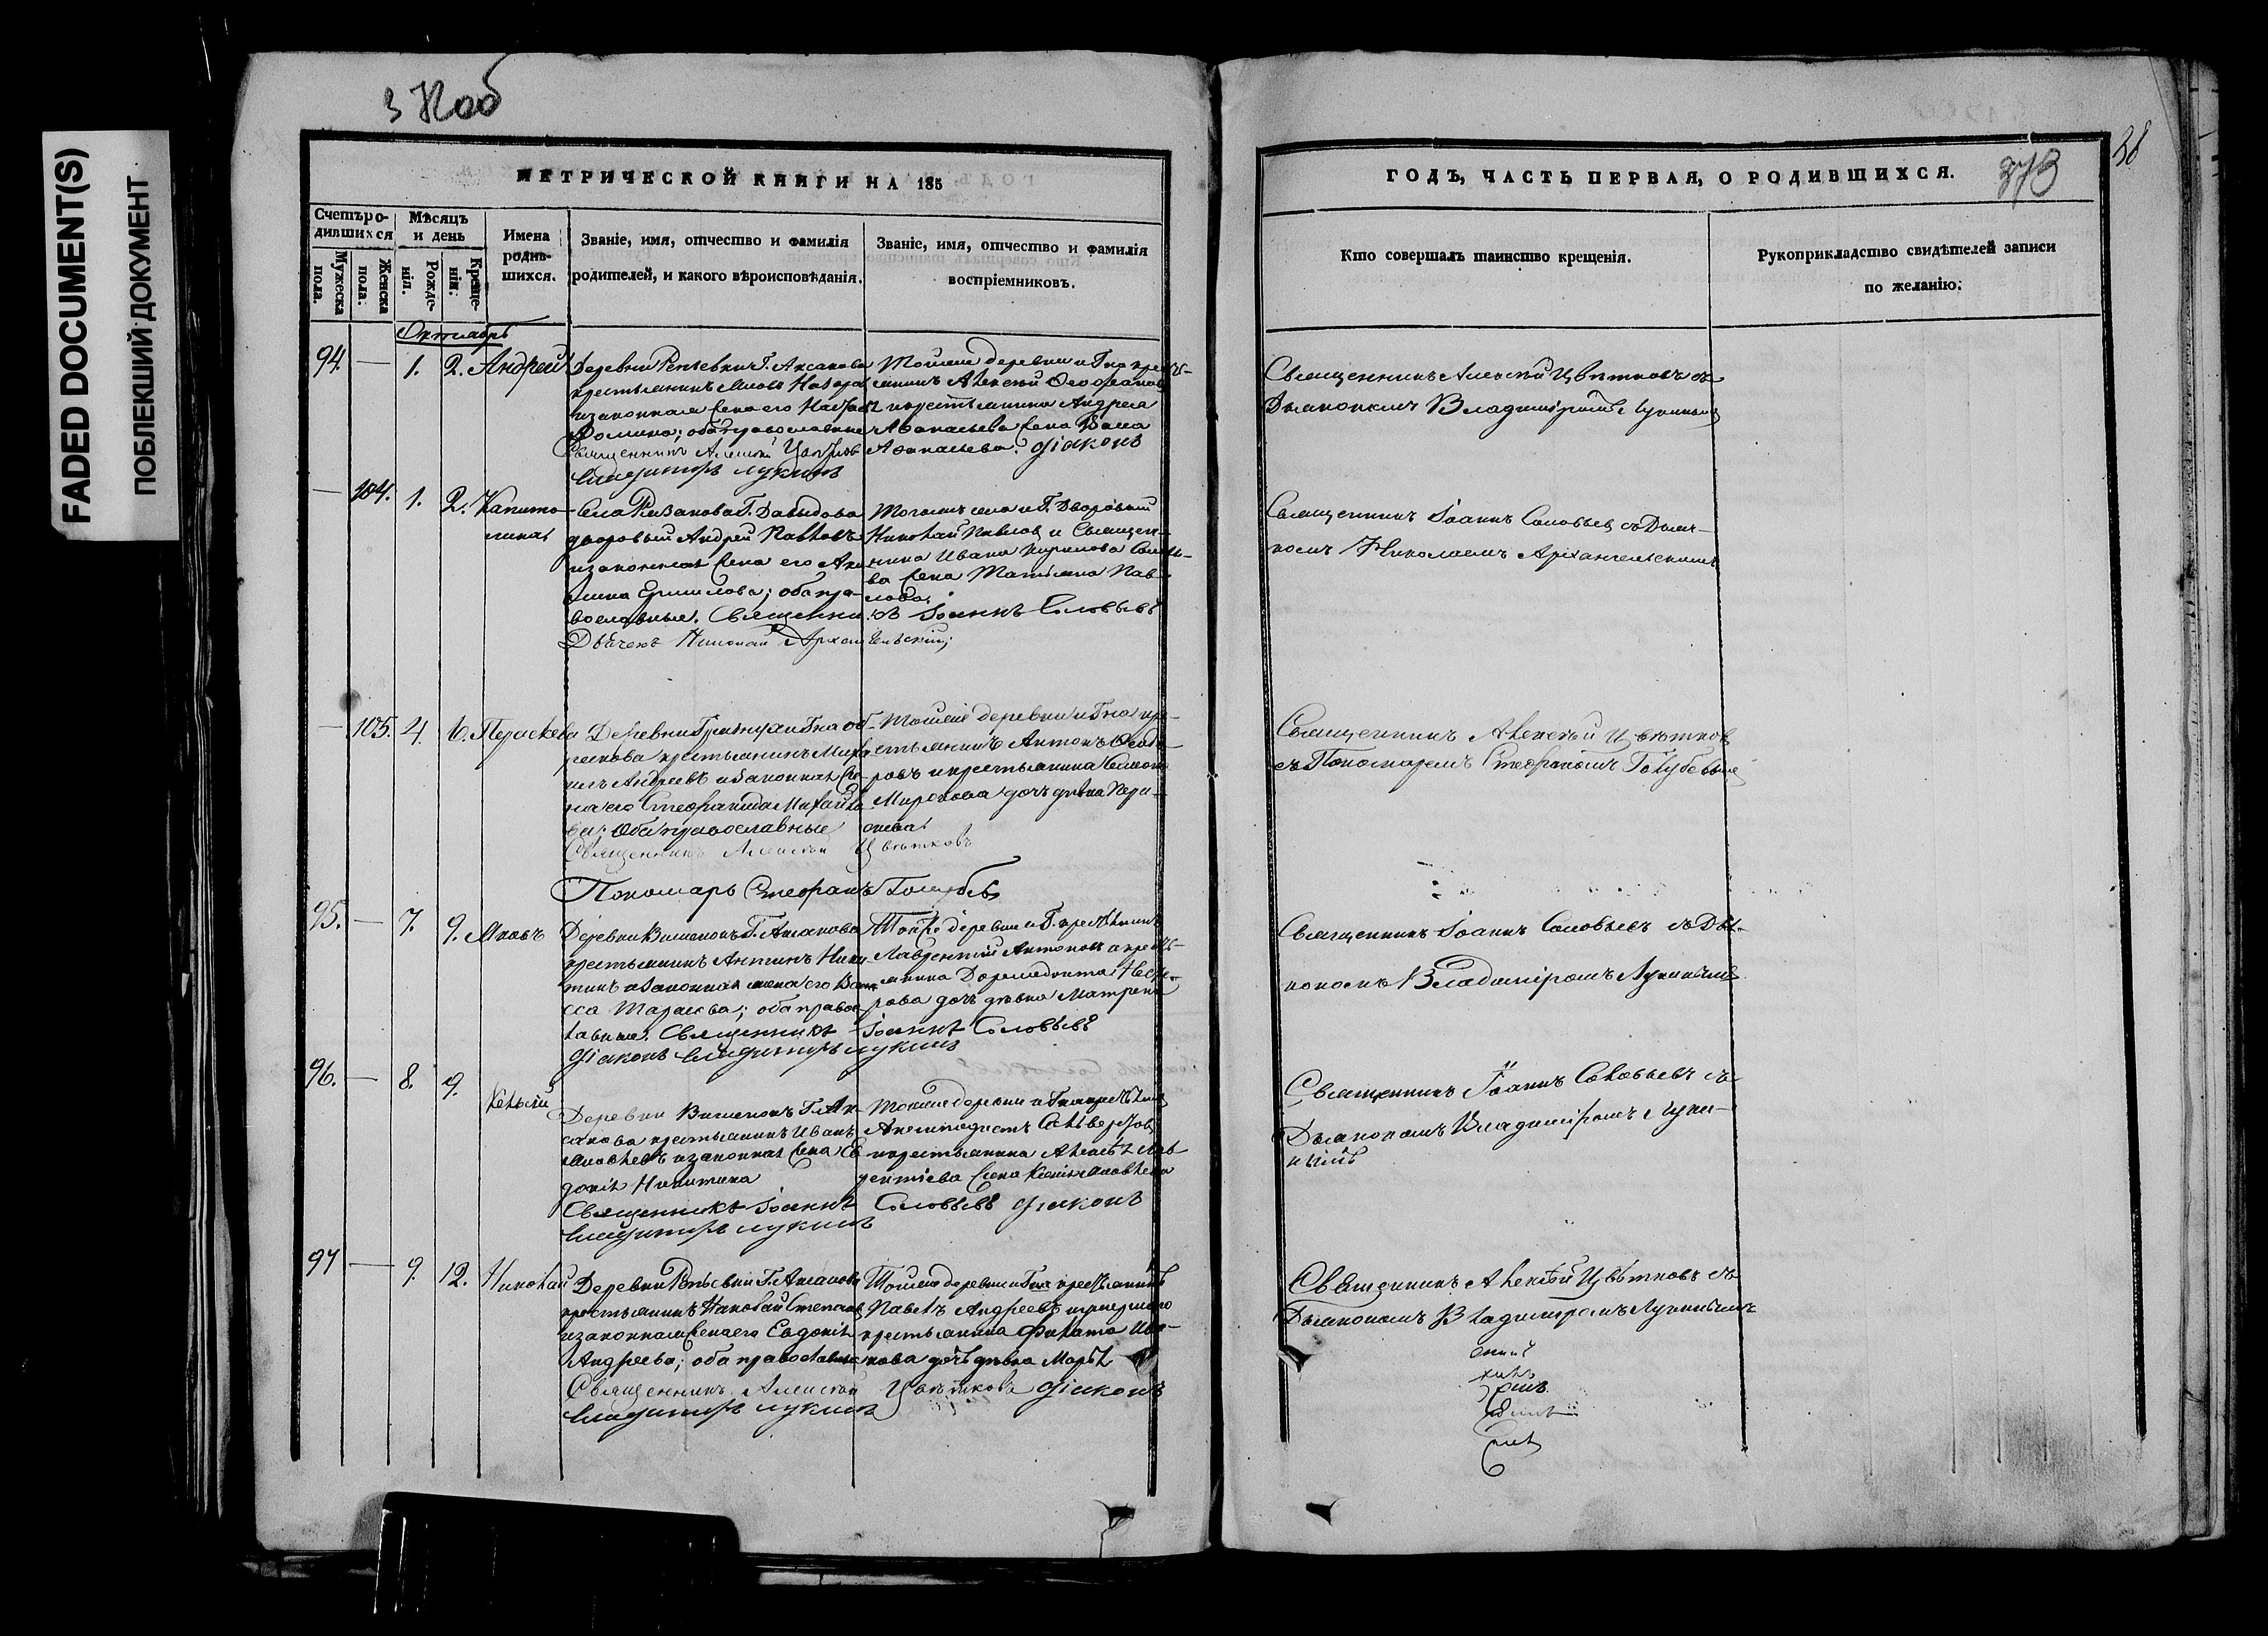 FADED DOCUMENT(S)
ПОБЛЕКШИЙ ДОКУМЕНТ
МЕТРИЧЕСКОЙ КНИГИ НА 185
Счетъ ро-
дившихся
Мужеска пола.
Женска пола.
Мѣсяцъ
и день
Рожде-
нія.
Креще-
нія.
Имена
родив-
шихся.
Званіе, имя, отчество и фамилія
родителей, и какого вѣроисповѣданія.
Званіе, имя, отчество и фамилія
воспріемниковъ.
Октябрь
94. — 1. 2. Андрей
Деревни Г. Аксакова
крестьянинъ
и законная жена его
Фомина; оба православные
Священникъ Алексѣй Цвѣтковъ
Владимиръ Лукинъ
Тойже деревни и Гна кресть-
янинъ Алексѣй
и крестьянина Андрея
Аѳанасьева жена
Аѳанасьева. Діаконъ
— 104. 1. 2. Капито-
лина
Села Г. Давыдова
дворовый Андрей Павловъ
и законная жена его Аку-
лина Ермилова; оба пра-
вославные. Священникъ Іоаннъ Соловьевъ
Дьячекъ Николай Архангельскій;
Тогожъ села и Г. Дворовый
Николай Павловъ и Священ-
ника Ивана Кирилова Соловье-
ва жена Татьяна Пав-
лова.
— 105. 4. 6. Параскева
Деревни Гна
крестьянинъ Миха-
илъ Андреевъ и законная же-
на его Стефанида Михайло-
ва; Оба православные
Священникъ Алексѣй Цвѣтковъ
Пономарь Стефанъ Голубевъ
Тойже деревни и Гна кре-
стьянинъ Антонъ Ѳедо-
ровъ и крестьянина
Миронова дочь дѣвка Пара-
скева
95. — 7. 9. Яковъ
Деревни Г. Аксакова
крестьянинъ Антипъ Ники-
тинъ и законная жена его Васи-
са Тарасова; оба правос-
лавные. Священникъ Іоаннъ Соловьевъ
Діаконъ Владимиръ Лукинъ
Тойже деревни и Г. крестьянинъ
Лаврентій Антоновъ и кресть-
янина Доримедонта Несте-
рова дочь дѣвка Матрена
96. — 8. 9.
Деревни Г. Ак-
сакова крестьянинъ Иванъ
Яковлевъ и законная жена Ев-
докія Никитина
Священникъ Іоаннъ Соловьевъ Діаконъ
Владимиръ Лукинъ
Тойже деревни и Гна крестьянинъ
и крестьянина Алексѣя Лав-
рентіева жена Яковлева
97 — 9. 12. Николай
Деревни Г. Аксакова
крестьянинъ Николай Степановъ
и законная жена его Евдокія
Андреева; оба православные
Священникъ Алексѣй Цвѣтковъ Діаконъ
Владимиръ Лукинъ
Тойже деревни и Гна крестьянинъ
Павелъ Андреевъ и
крестьянина Филата Ива-
нова дочь дѣвка Марья
ГОДЪ, ЧАСТЬ ПЕРВАЯ, О РОДИВШИХСЯ.
373
38
Кто совершалъ таинство крещенія.
Рукоприкладство свидѣтелей записи
по желанію.
Священникъ Алексѣй Цвѣтковъ съ
Дьякономъ Владиміромъ Лукинымъ
Священникъ Іоаннъ Соловьевъ съ Дьяч-
комъ Николаемъ Архангельскимъ
Священникъ Алексѣй Цвѣтковъ
съ Пономаремъ Стефаномъ Голубевымъ
Священникъ Іоаннъ Соловьевъ съ Дья-
кономъ Владиміромъ Лукинымъ
Священникъ Іоаннъ Соловьевъ съ
Дьякономъ Владиміромъ Луки-
нымъ
Священникъ Алексѣй Цвѣтковъ съ
Дьякономъ Владимиромъ Лукинымъ